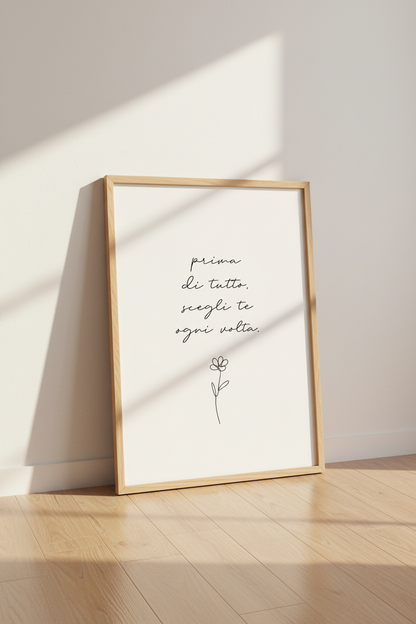 prima
di tutto,
scegli te
ogni volta.